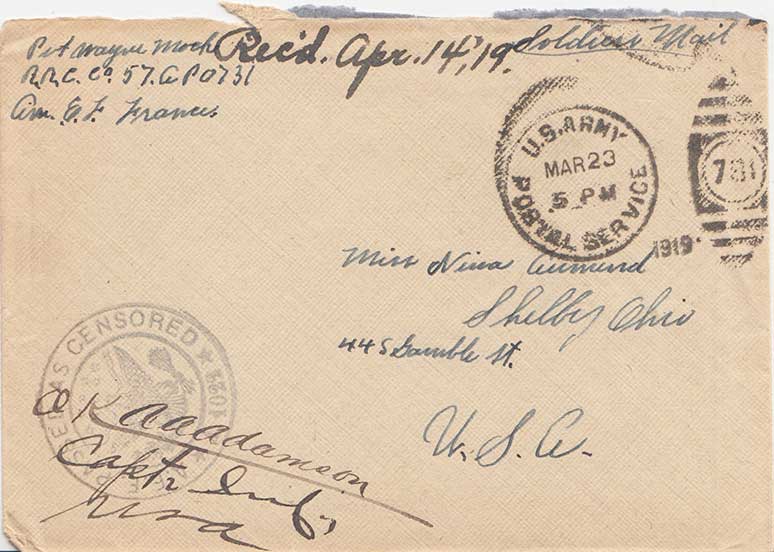 Pvt Wayne Mock
Rec'd. Apr. 14, '19.
Soldiers Mail
R.R.C. Co. 57. A P O 731
Am. E. F. France
U.S. ARMY
MAR 23
5 PM
POSTAL SERVICE
1919
Miss Nina
Shelby Ohio
44 S Gamble St.
U. S. A.
AS CENSORED
O K AAAdamson
Capt. Inf.
USA